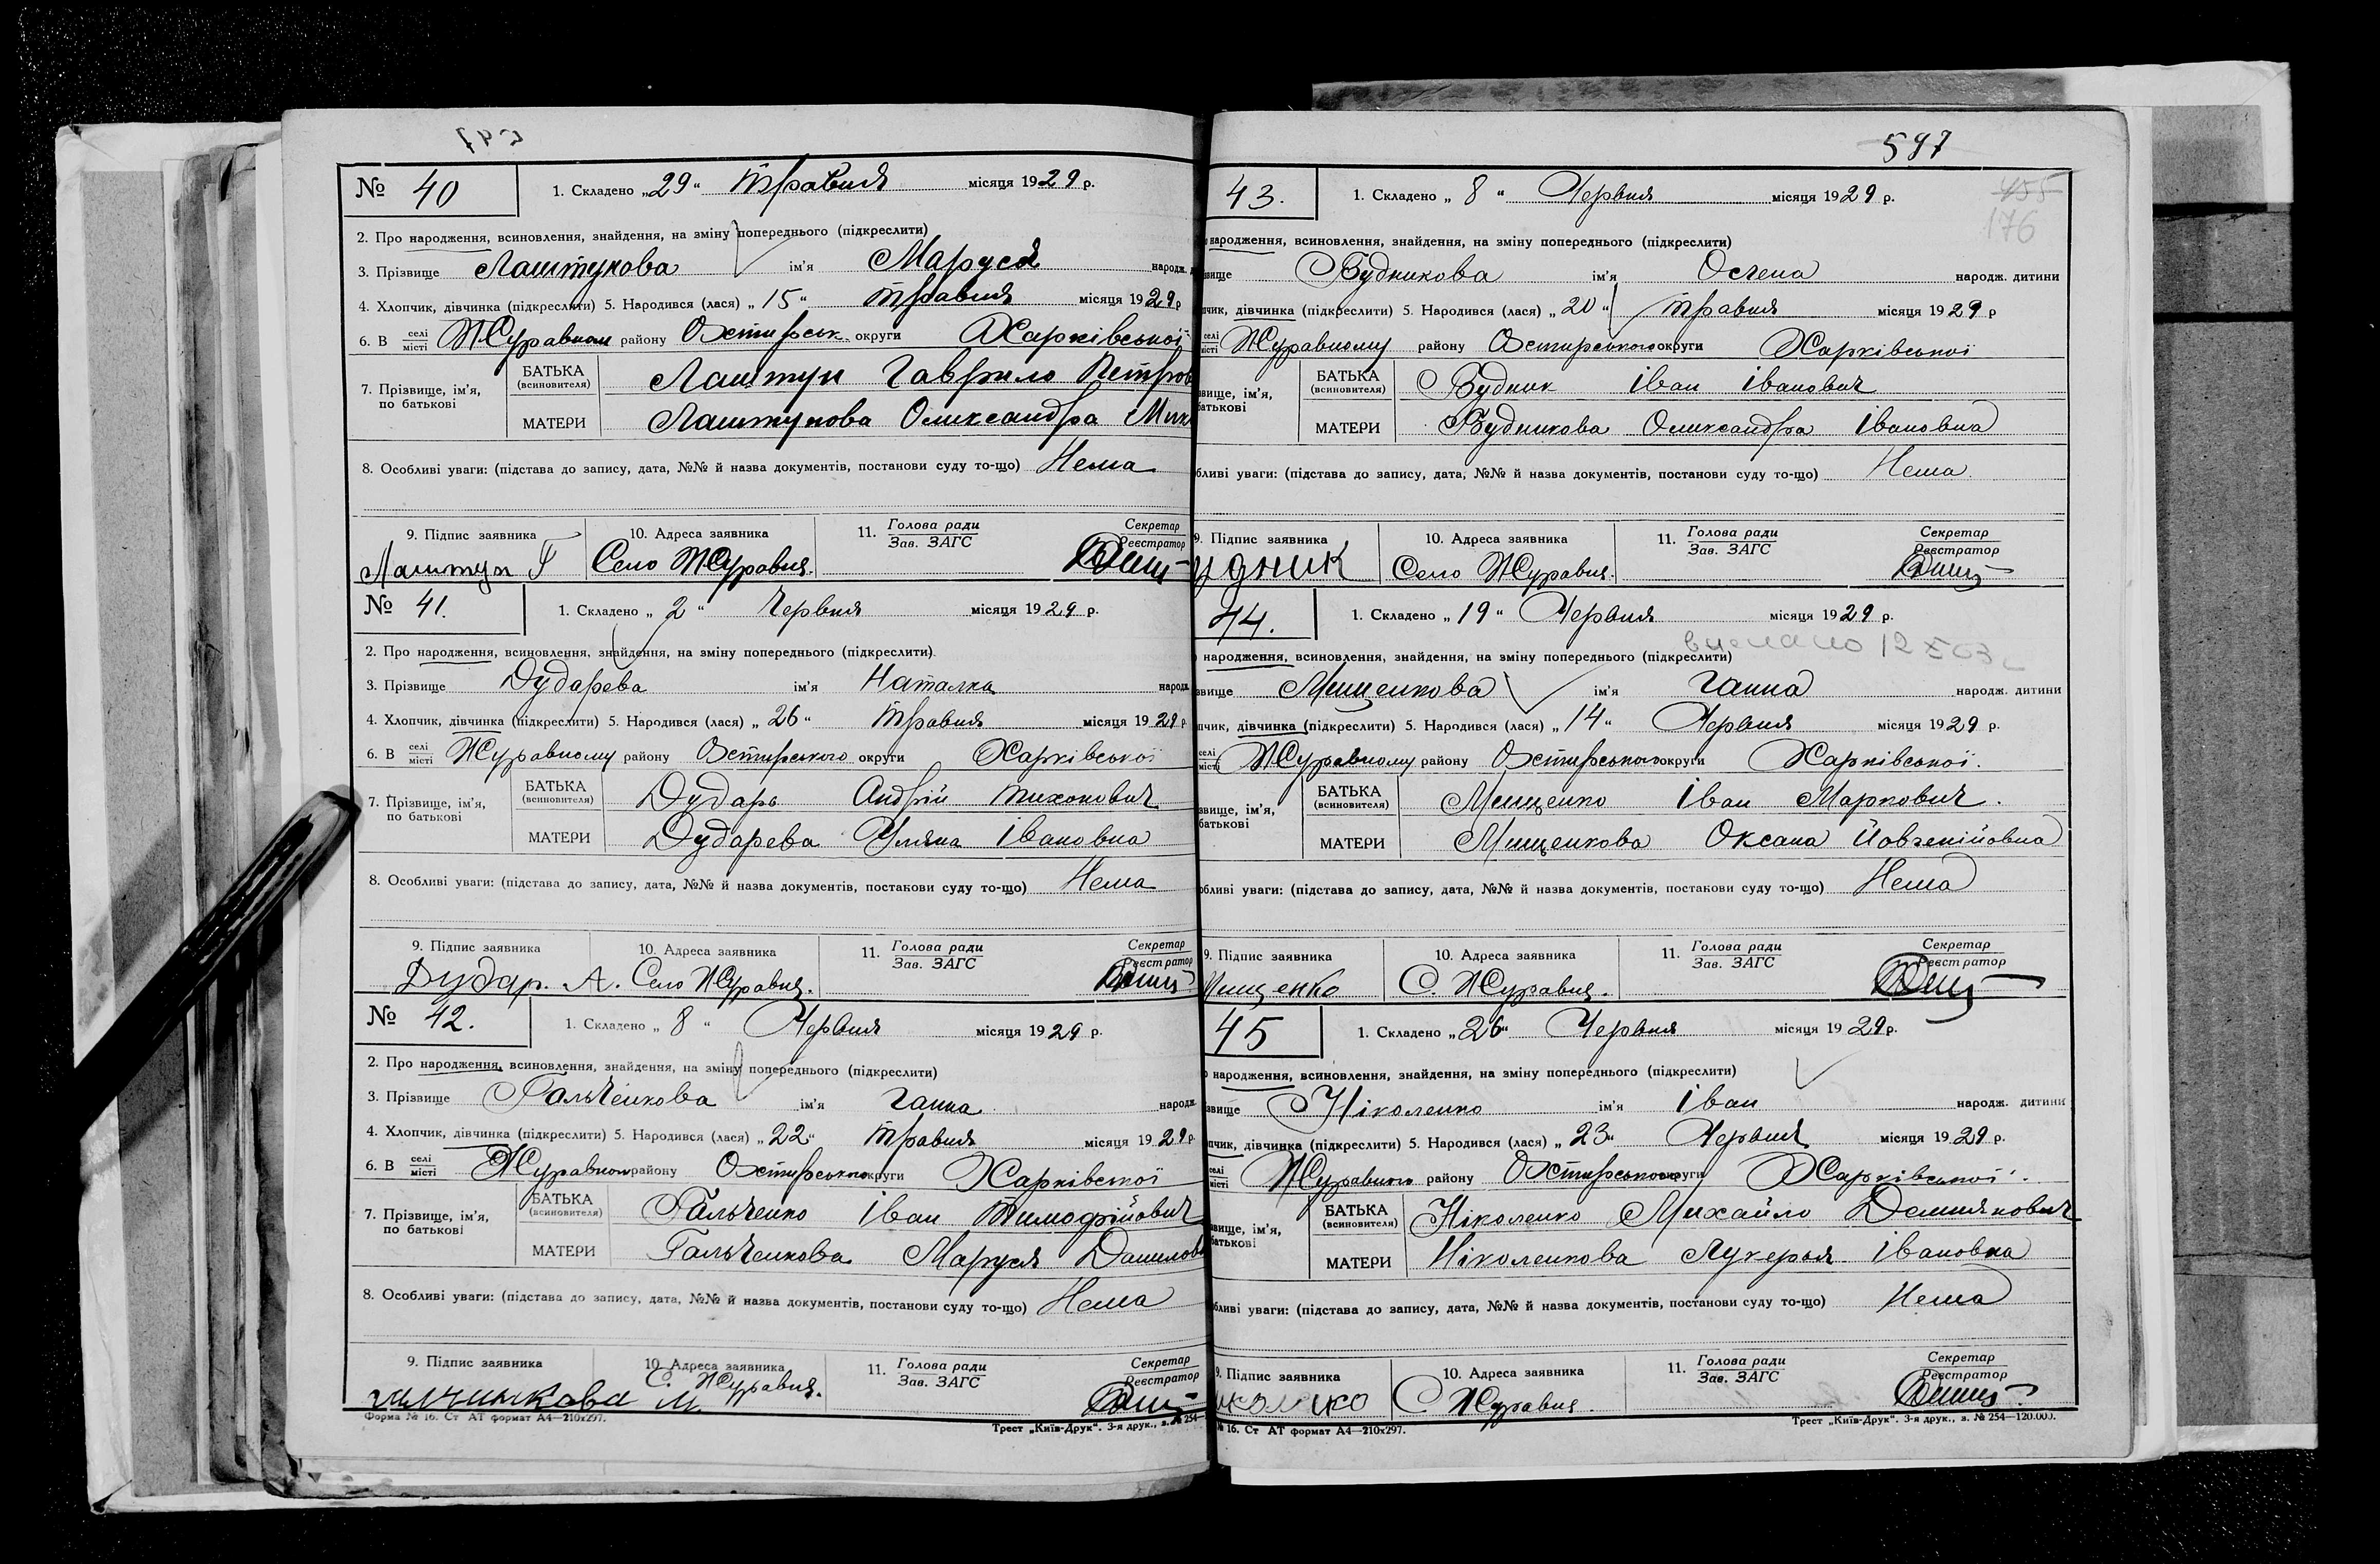 № 40
1. Складено „29“ травня місяця 1929 р.
2. Про народження, всиновлення, знайдення, на зміну попереднього (підкреслити)
3. Прізвище Лаштунова ім'я Маруся народж.
4. Хлопчик, дівчинка (підкреслити) 5. Народився (лася) „15“ травня місяця 1929 р
6. В селі місті Журавном району Охтирськ. округи Харківської
7. Прізвище, ім'я, по батькові
БАТЬКА (всиновителя) Лаштун Гаврило Петров
МАТЕРИ Лаштунова Олександра Мик
8. Особливі уваги: (підстава до запису, дата, №№ й назва документів, постанови суду то-що) Нема
9. Підпис заявника 10. Адреса заявника 11. Голова ради Зав. ЗАГС Секретар Реєстратор
Лаштун Г Село Журавня.
№ 41.
1. Складено „2“ Червня місяця 1929 р.
2. Про народження, всиновлення, знайдення, на зміну попереднього (підкреслити).
3. Прізвище Дударева ім'я Наталка народж.
4. Хлопчик, дівчинка (підкреслити) 5. Народився (лася) „26“ травня місяця 1929 р
6. В селі місті Журавному району Охтирського округи Харківської
7. Прізвище, ім'я, по батькові
БАТЬКА (всиновителя) Дударь Андрій тихонович
МАТЕРИ Дударева Уляна Івановна
8. Особливі уваги: (підстава до запису, дата, №№ й назва документів, постанови суду то-що) Нема
9. Підпис заявника 10. Адреса заявника 11. Голова ради Зав. ЗАГС Секретар Реєстратор
Дудар. А. Село Журавня.
№ 42.
1. Складено „8“ Червня місяця 1929 р.
2. Про народження, всиновлення, знайдення, на зміну попереднього (підкреслити)
3. Прізвище Гальченкова ім'я Ганна народж.
4. Хлопчик, дівчинка (підкреслити) 5. Народився (лася) „22“ травня місяця 1929 р.
6. В селі місті Журавном району Охтирського округи Харківської
7. Прізвище, ім'я, по батькові
БАТЬКА (всиновителя) Гальченко Іван Тимофійович
МАТЕРИ Гальченкова Маруся Данилов
8. Особливі уваги: (підстава до запису, дата, №№ й назва документів, постанови суду то-що) Нема
9. Підпис заявника 10. Адреса заявника 11. Голова ради Зав. ЗАГС Секретар Реєстратор
С. Журавня.
Форма № 16. Ст АТ формат А4—210x297.
Трест „Київ-Друк“. 3-я друк., з. № 254—
597
455
176
43.
1. Складено „8“ Червня місяця 1929 р.
народження, всиновлення, знайдення, на зміну попереднього (підкреслити)
вище Будникова ім'я Олена народж. дитини
пчик, дівчинка (підкреслити) 5. Народився (лася) „20“ травня місяця 1929 р
селі місті Журавному району Охтирського округи Харківської
вище, ім'я, батькові
БАТЬКА (всиновителя) Будник Іван Іванович
МАТЕРИ Будникова Олександра Івановна
бливі уваги: (підстава до запису, дата, №№ й назва документів, постанови суду то-що) Нема.
9. Підпис заявника 10. Адреса заявника 11. Голова ради Зав. ЗАГС Секретар Реєстратор
удник Село Журавня.
44.
1. Складено „19“ Червня місяця 1929 р.
народження, всиновлення, знайдення, на зміну попереднього (підкреслити)
звище Мищенкова ім'я Ганна народж. дитини
пчик, дівчинка (підкреслити) 5. Народився (лася) „14“ Червня місяця 1929 р.
селі місті Журавному району Охтирського округи Харківської.
звище, ім'я, батькові
БАТЬКА (всиновителя) Мищенко Іван Маркович.
МАТЕРИ Мищенкова Оксана Йовгенійовна
обливі уваги: (підстава до запису, дата, №№ й назва документів, постанови суду то-що) Нема
9. Підпис заявника 10. Адреса заявника 11. Голова ради Зав. ЗАГС Секретар Реєстратор
Мищенко С. Журавня.
45
1. Складено „26“ Червня місяця 1929 р.
народження, всиновлення, знайдення, на зміну попереднього (підкреслити)
звище Ніколенко ім'я Іван народж. дитини
пчик, дівчинка (підкреслити) 5. Народився (лася) „23“ Червня місяця 1929 р.
селі місті Журавного району Охтирського округи Харківської.
звище, ім'я, батькові
БАТЬКА (всиновителя) Ніколенко Михайло Демянович
МАТЕРИ Ніколенкова Лукерья Івановна
бливі уваги: (підстава до запису, дата, №№ й назва документів, постанови суду то-що) Нема
9. Підпис заявника 10. Адреса заявника 11. Голова ради Зав. ЗАГС Секретар Реєстратор
С. Журавня.
№ 16. Ст АТ формат А4—210x297.
Трест „Київ-Друк“. 3-я друк., з. № 254—120.000.